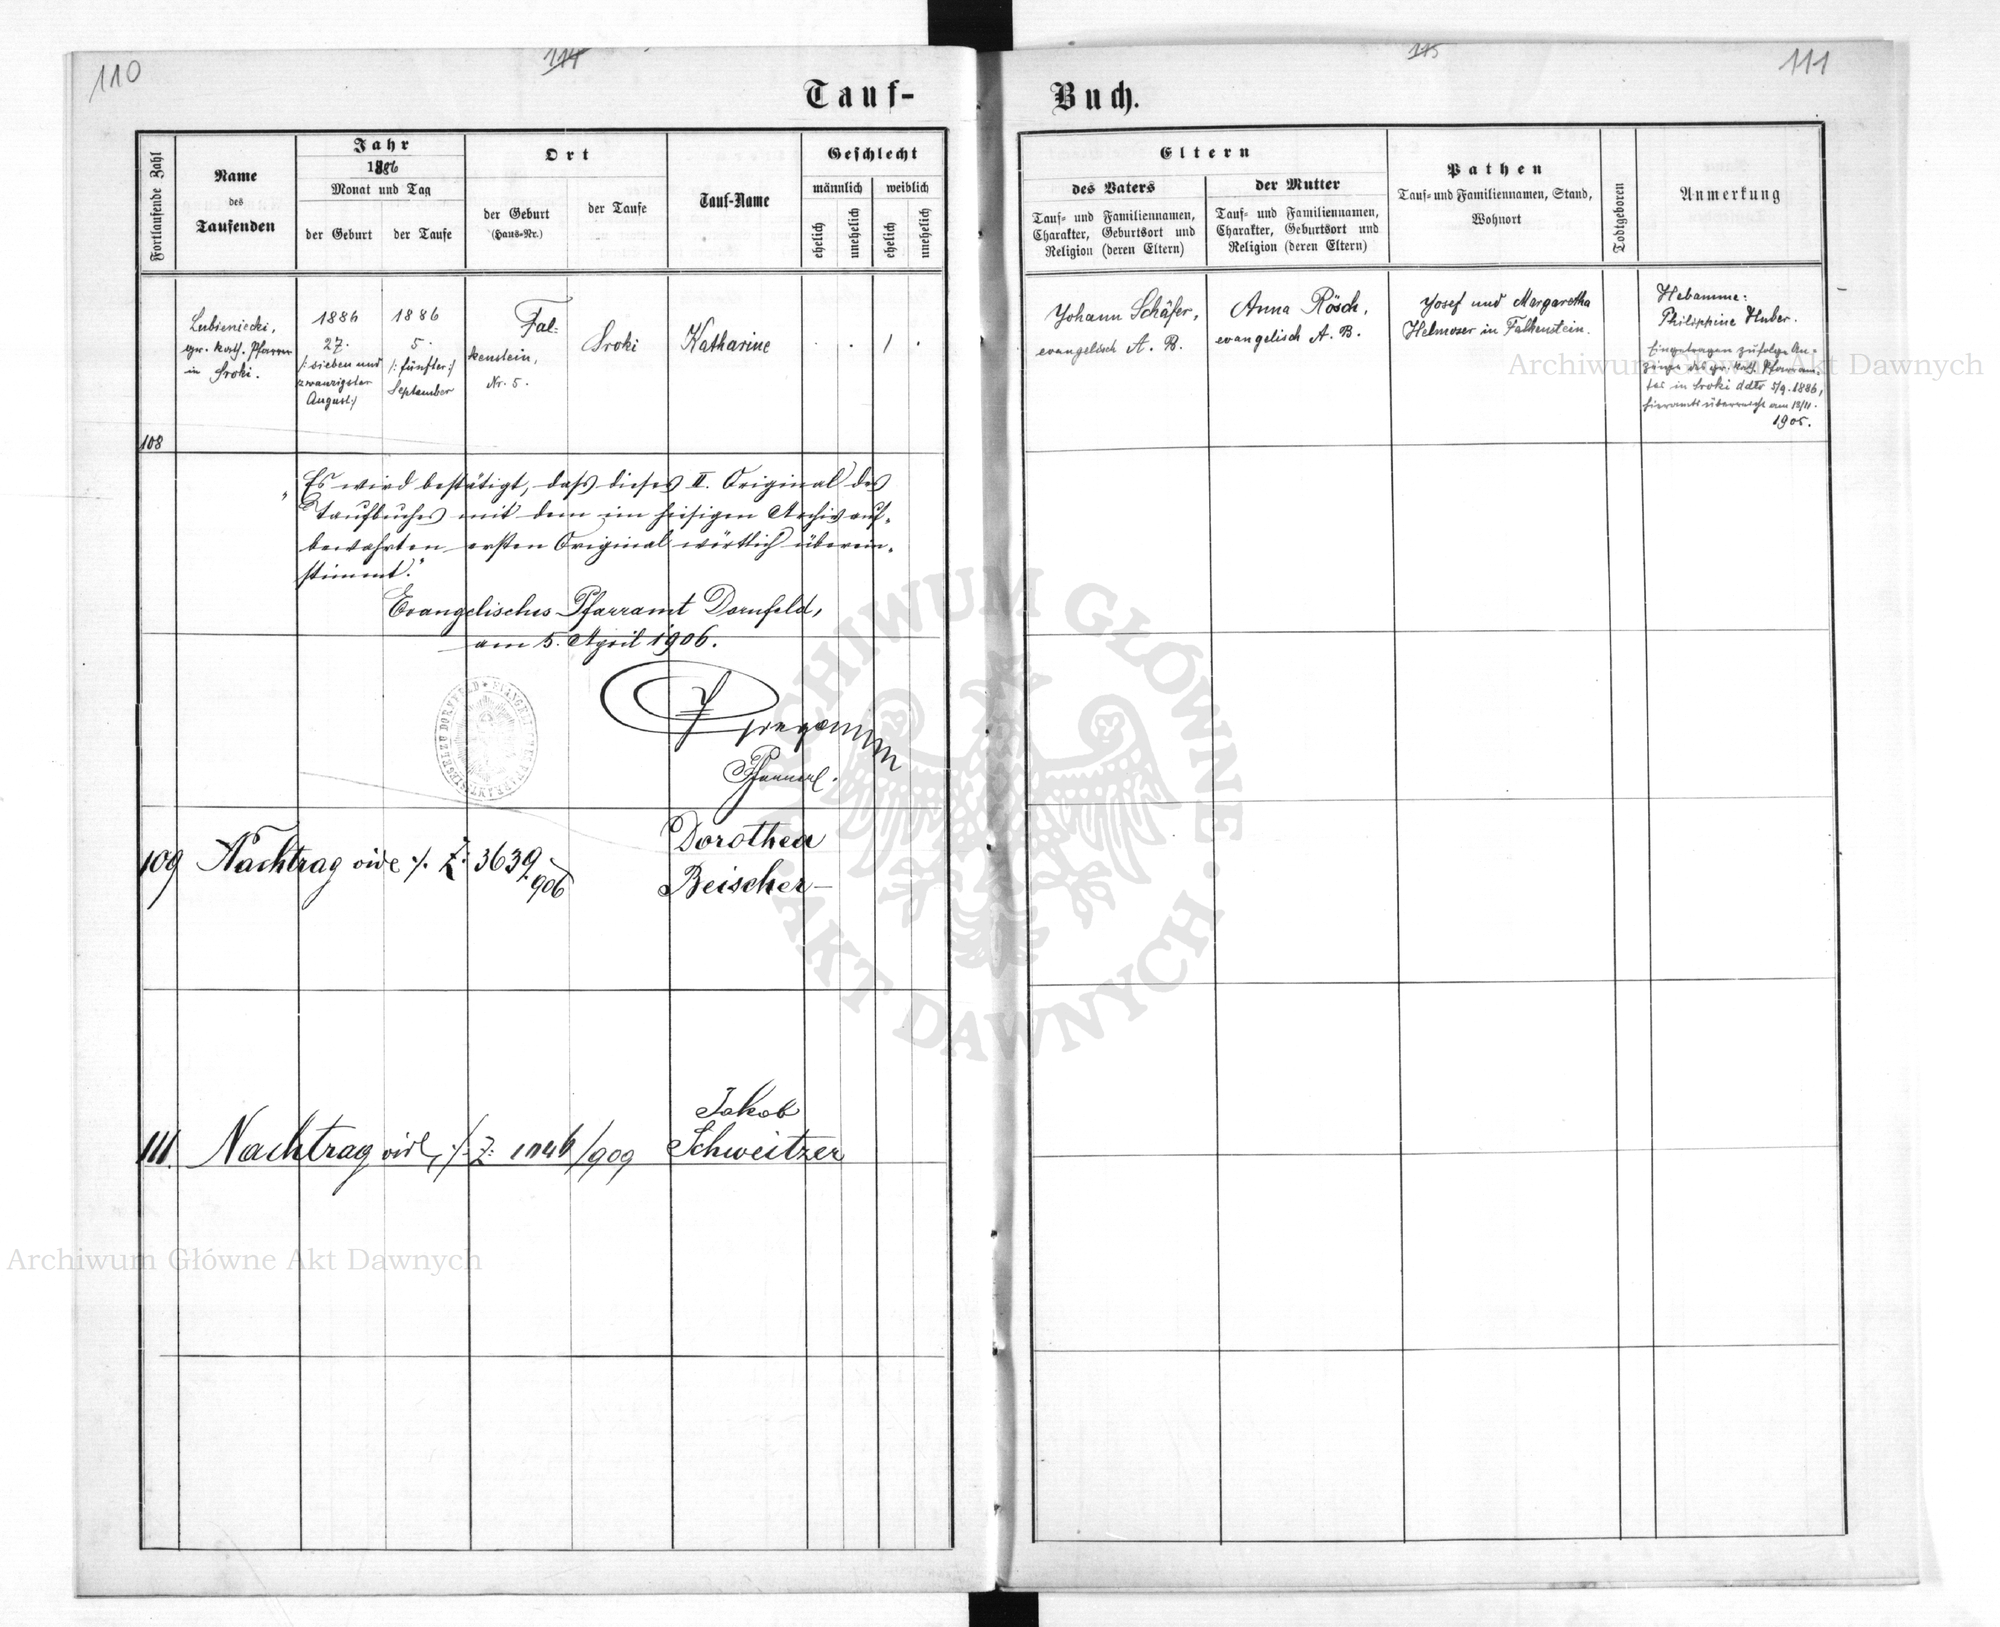 110
114
Tauf-
Fortlaufende Zahl
Name
des
Taufenden
Jahr
1886
Monat und Tag
der Geburt
der Taufe
Ort
der Geburt
(Haus-Nr.)
der Taufe
Tauf-Name
Geschlecht
männlich
weiblich
ehelich
unehelich
ehelich
unehelich
108
Lubieniecki,
gr. kath. Pfarrer
in Sroki.
1886
27.
/: sieben und
zwanzigster
August:/
1886
5.
/: fünfter :/
September
Fal-
kenstein,
Nr. 5.
Sroki
Katharine
. . 1 .
"Es wird bestätigt, daß dieses II. Original des
Taufbuches mit dem im hiesigen Archiv auf-
bewahrten ersten Original wörtlich überein-
stimmt."
Evangelisches Pfarramt Dornfeld,
am 5. April 1906.
109 Nachtrag vide ./. Z: 3639
906
Dorothea
Beischer
111. Nachtrag vide ./. Z: /909
Jakob
Schweitzer
115
111
Buch.
Eltern
des Vaters
Tauf- und Familiennamen,
Charakter, Geburtsort und
Religion (deren Eltern)
der Mutter
Tauf- und Familiennamen,
Charakter, Geburtsort und
Religion (deren Eltern)
Pathen
Tauf- und Familiennamen, Stand,
Wohnort
Todtgeboren
Anmerkung
Johann Schäfer,
evangelisch A. B.
Anna Rösch,
evangelisch A. B.
Josef und Margaretha
Helmoser in Falkenstein.
Hebamme:
Philippine Huber.
Eingetragen zufolge An-
zeige des gr. kath. Pfarram-
tes in Sroki ddto 5/9. 1886,
hieramts überreicht am 13/11.
1905.
ARCHIWUM GŁÓWNE AKT DAWNYCH
Archiwum Główne Akt Dawnych
Archiwum Główne Akt Dawnych